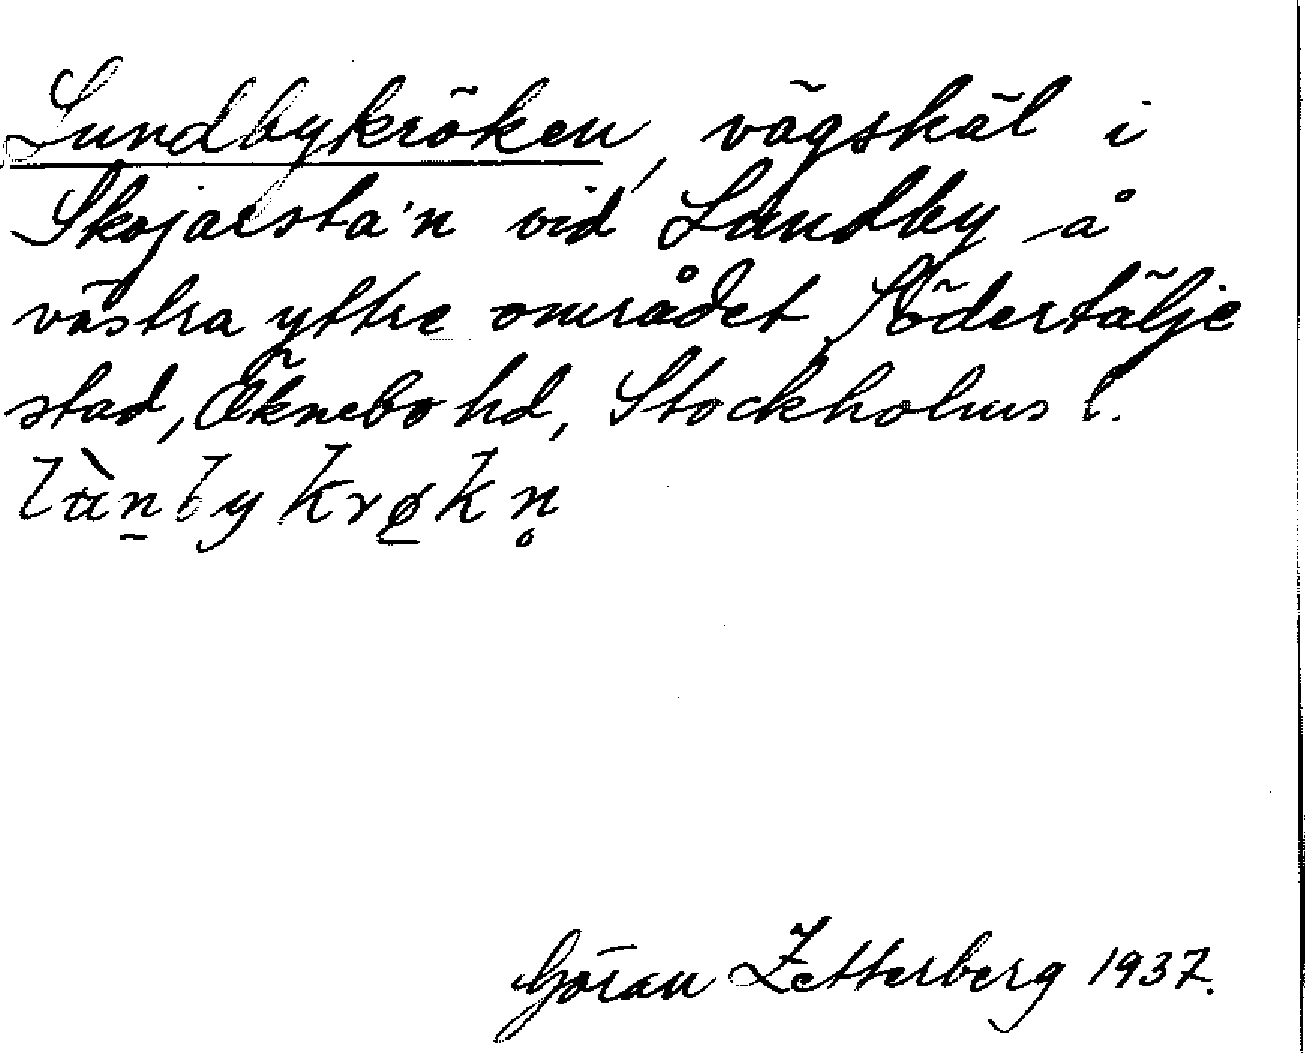 Lundbykröken, vägskäl i
Skojarsta'n vid Lundby å
västra yttre området Södertälje
stad, Öknebo hd, Stockholms l.
lùn̠bykrø̠kn̥
Göran Zetterberg 1937.